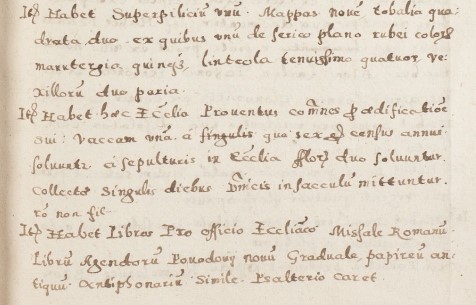 Itē Habet Superpiliciū vnū. Mappas noue tobalia qua-
drata duo, ex quibus vnū de serico plano rubei coloris
manutergia quinqз, linteola tenuissimo quatuor ve-
xillorū duo paria.
Itē Habet hæc Eccłia Prouentus ... p ædificatiõe
sui: Vaccam vnā. a singulis quo sex ... census annue
soluunt. a sepultueis in Eccłia flor duo soluuntur.
Collecta singulis diebus Dñicis in sacculū mittuntur.
ro non fit.
Itē Habet Libros Pro officio Eccliãco Missale Romanū.
Librū Agendorū Powodowy nouū Graduale, papireū an-
tiquū. Antiphonariū Simile. Psalterio Caret.